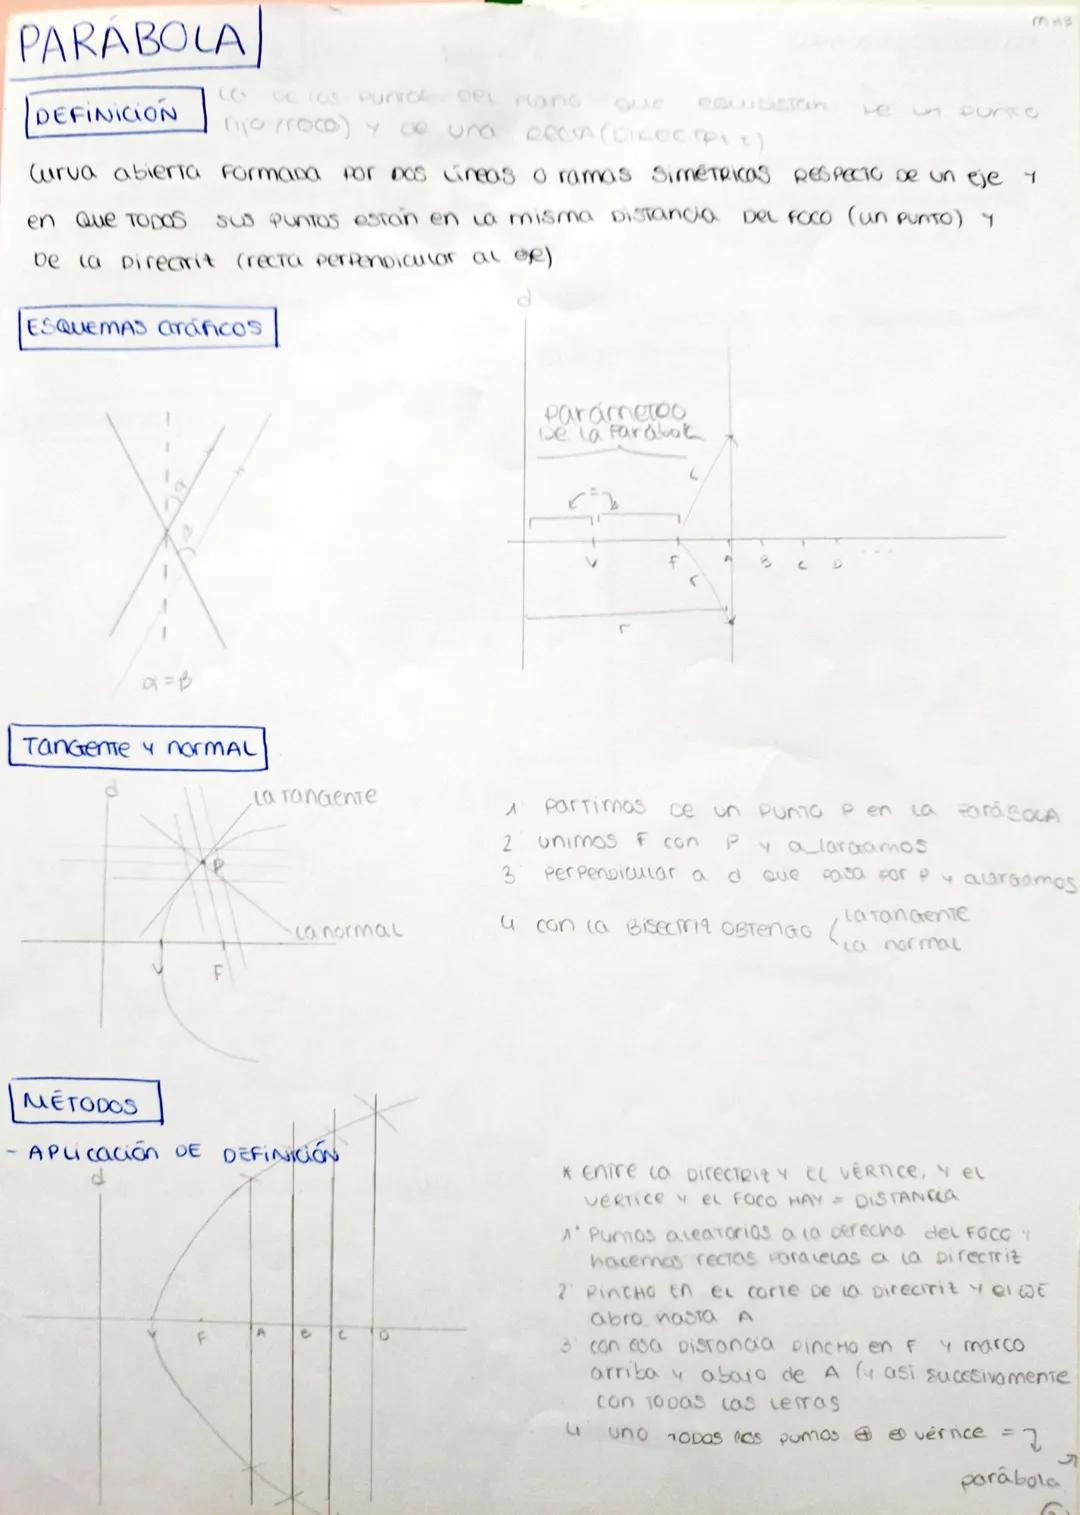 MAB
PARÁBOLA
DEFINICIÓN
LG de los puntos del plano que equidistan de un punto
fijo (foco) y de una RECTA (DIRECTRIZ)
Curva abierta formada por dos líneas o ramas simétricas respecto de un eje y
en que todos sus puntos están en la misma distancia del foco (un punto) y
de la directriz (recta perpendicular al eje)
ESQUEMAS GRÁFICOS
d
Parámetro
de la Parábola
=
α
β
r
V F A B C D ...
r
r
α = β
Tangente y normal
d
la tangente
P
la normal
V F
1 Partimos de un punto P en la parábola
2 unimos F con P y alargamos
3 Perpendicular a d que pasa por P y alargamos
4 con la Bisectriz obtengo la tangente
la normal
MÉTODOS
- APLICACIÓN DE DEFINICIÓN
d
V F A B C D
* Entre la directriz y el vértice, y el
vértice y el foco hay = distancia
1º Puntos aleatorios a la derecha del foco y
hacemos rectas paralelas a la directriz
2º Pincho en el corte de la directriz y el eje
abro hasta A
3º con esa distancia pincho en F y marco
arriba y abajo de A (y así sucesivamente
con todas las letras
4 uno todos los puntos ⊕ el vértice =
parábola